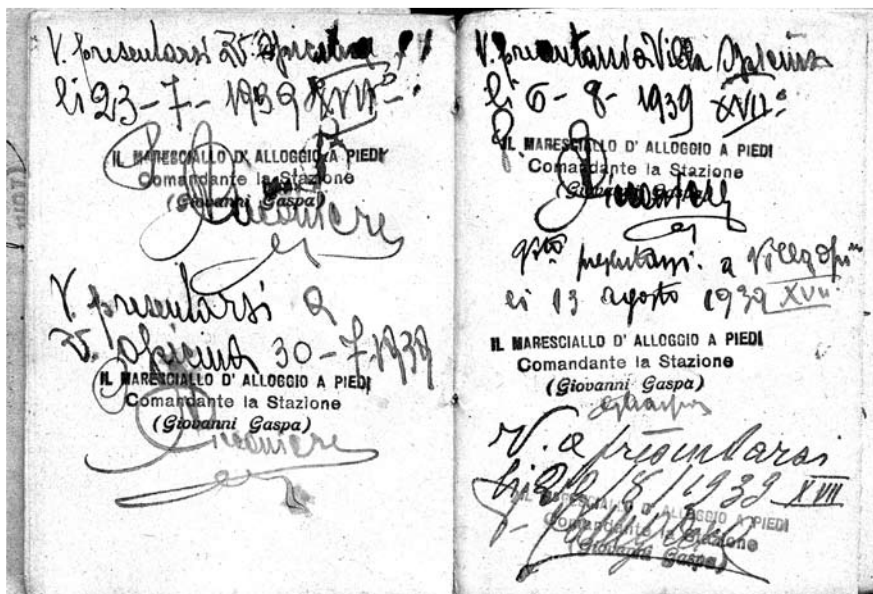 V. presentarsi
li 23-7-1939 XVII°
IL MARESCIALLO D' ALLOGGIO A PIEDI
Comandante la Stazione
(Giovanni Gaspa)
V. presentarsi a
V. Opicina 30-7-1939
IL MARESCIALLO D' ALLOGGIO A PIEDI
Comandante la Stazione
(Giovanni Gaspa)
V. presentarsi a Villa Opicina
li 6-8-1939 XVII°
IL MARESCIALLO D' ALLOGGIO A PIEDI
Comandante la Stazione
(Giovanni Gaspa)
presentarsi a Villa Opi
li 13 agosto 1939 XVII
IL MARESCIALLO D' ALLOGGIO A PIEDI
Comandante la Stazione
(Giovanni Gaspa)
V. a presentarsi
li /8/1939 XVII
IL MARESCIALLO D' ALLOGGIO A PIEDI
Comandante la Stazione
(Giovanni Gaspa)